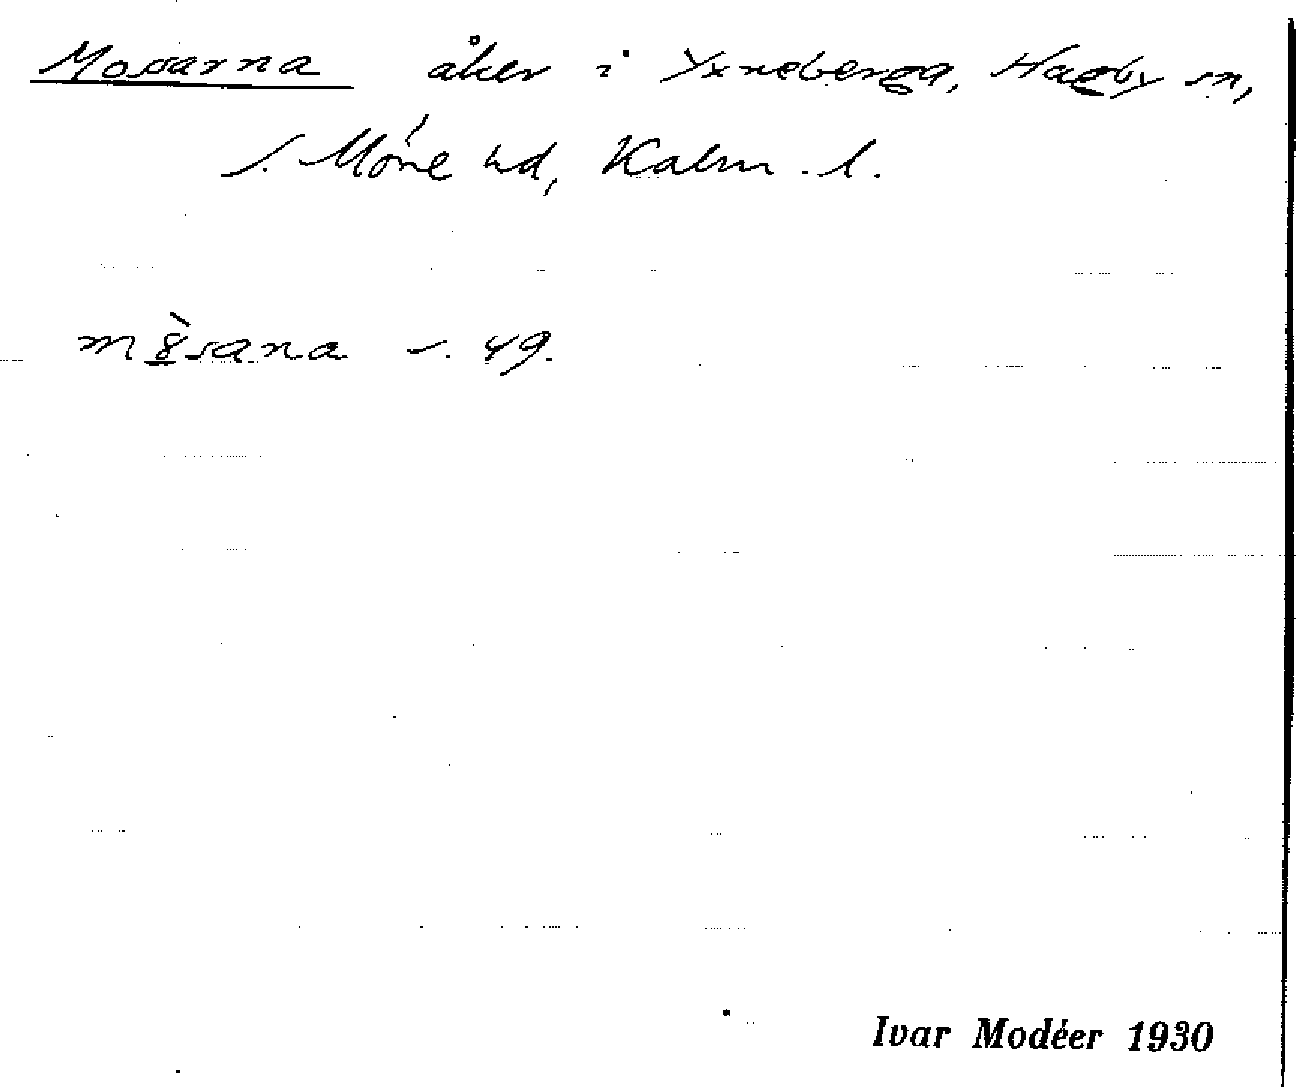 Mossarna åker i Yxneberga, Hagby sn,
S. Möre hd, Kalm. l.
m8̀sana s. 49.
Ivar Modéer 1930